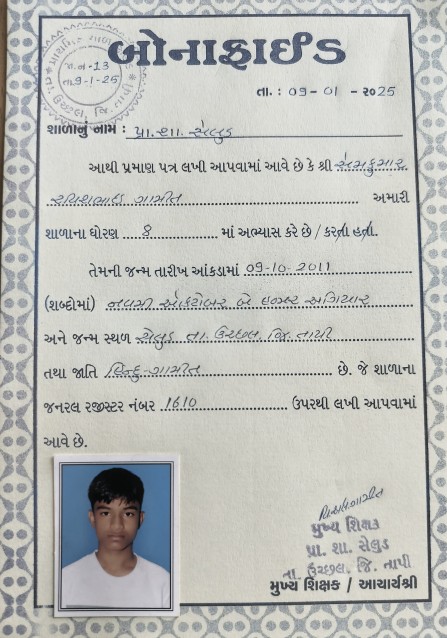 બોનાફાઈડ
જા.નં-13
તા.9-1-25
તા. : ૦૯- 01 - ૨૦25
શાળાનું નામ : પ્રા.શા. સેલુડ
આથી પ્રમાણ પત્ર લખી આપવામાં આવે છે કે શ્રી
ગામીત અમારી
શાળાના ધોરણ 8 માં અભ્યાસ કરે છે / કરતા હતા.
તેમની જન્મ તારીખ આંકડામાં 09-10-2011
(શબ્દોમાં) નવમી ઓક્ટોબર બે હજાર અગિયાર
અને જન્મ સ્થળ સેલુડ તા. ઉચ્છલ. જિ. તાપી
તથા જાતિ હિન્દુ-ગામીત છે. જે શાળાના
જનરલ રજીસ્ટર નંબર 1610 ઉપરથી લખી આપવામાં
આવે છે.
મુખ્ય શિક્ષક
પ્રા. શા. સેલુડ
તા. ઉચ્છલ. જિ. તાપી
મુખ્ય શિક્ષક / આચાર્યશ્રી